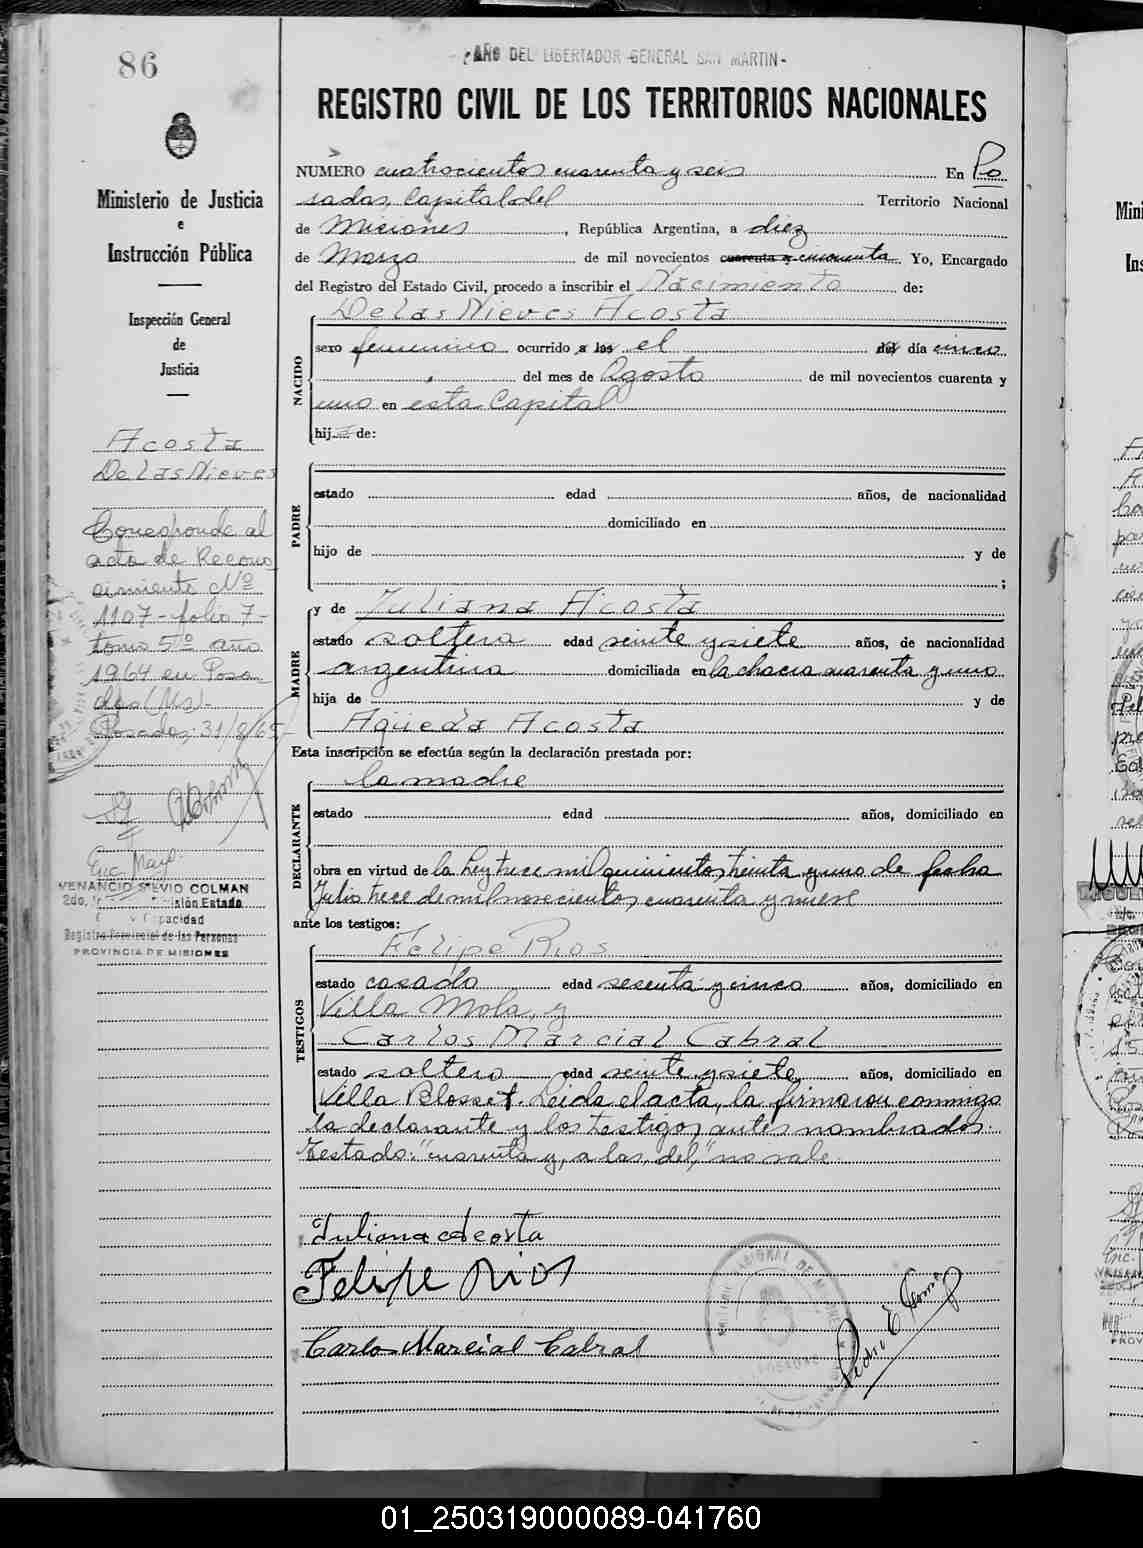 86
AÑO DEL LIBERTADOR GENERAL SAN MARTIN-
REGISTRO CIVIL DE LOS TERRITORIOS NACIONALES
Ministerio de Justicia
e
Instrucción Pública
Inspección General
de
Justicia
Acosta
De Las Nieves
Corresponde al
acta de Recono
cimiento Nº
1107-folio 7-
tomo 5º año
1964 en Posa
das (Ms)-
Posadas, 31/8/65
Enc. Mayo
VENANCIO SILVIO COLMAN
2do.
Estado
y Capacidad
Registro Provincial de las Personas
PROVINCIA DE MISIONES
NUMERO cuatrocientos cuarenta y seis En Po
sadas, Capital del Territorio Nacional
de Misiones, República Argentina, a diez
de Marzo de mil novecientos cuarenta y cincuenta Yo, Encargado
del Registro del Estado Civil, procedo a inscribir el Nacimiento de:
De Las Nieves Acosta
NACIDO
sexo femenino ocurrido a las el del día cinco
del mes de Agosto de mil novecientos cuarenta y
uno en esta Capital
hija de:
PADRE
estado edad años, de nacionalidad
domiciliado en
hijo de y de
;
MADRE
y de Juliana Acosta
estado soltera edad veinte y siete años, de nacionalidad
argentina domiciliada en la chacra cuarenta y uno
hija de y de
Agueda Acosta
Esta inscripción se efectúa según la declaración prestada por:
DECLARANTE
la madre
estado edad años, domiciliado en
obra en virtud de la Ley trece mil quinientos treinta y uno de fecha
Julio trece de mil novecientos cuarenta y nueve
ante los testigos:
TESTIGOS
Felipe Rios
estado casado edad sesenta y cinco años, domiciliado en
Villa Mola, y
Carlos Marcial Cabral
estado soltero edad veinte y siete años, domiciliado en
Villa Blosset. Leida el acta, la firmaron conmigo
la declarante y los testigos antes nombrados.
Testado: "cuarenta y, a las, del," no vale.
Juliana Acosta
Felipe Rios
Carlos Marcial Cabral
01_250319000089-041760